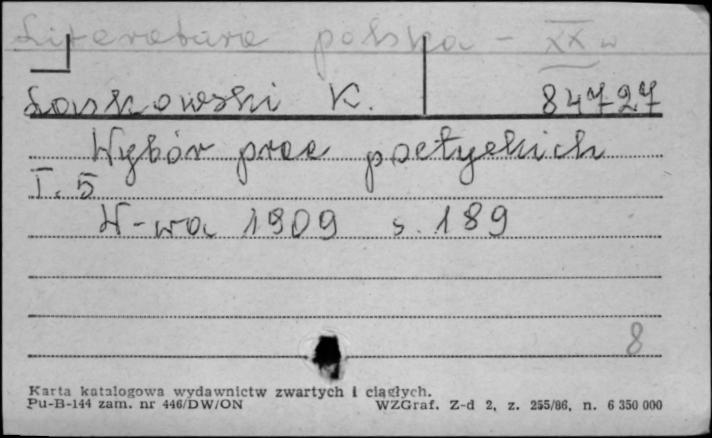 Literatura polska - XX w
Laskowski K. 84727
Wybór prac poetyckich
T. 5
W-wa 1909 s. 189
8
Karta katalogowa wydawnictw zwartych i ciągłych.
Pu-B-144 zam. nr 446/DW/ON WZGraf. Z-d 2, z. 255/86, n. 6 350 000